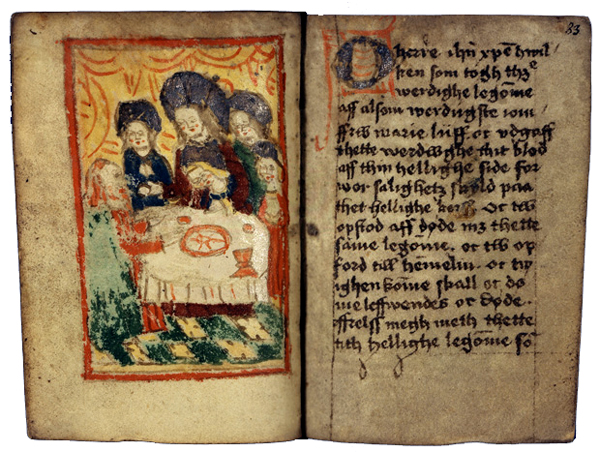 83
O herre ihū xpē hwil
ken som togh thz^e
werdighe legōme
aff alsom werdugste iom
ffrw marie liiff oc vdgaff
thette werdwghe thit blod
aff thin hellighe side for
wor salighetz skyld paa
thet hellighe kors. Oc tw
opstod aff dyde mz thette
sāme legōme. oc tw op
ford till hēmelin. oc
ighen kōme skall oc dō
me leffwendes oc dyde.
ffrelss megh meth thette
tith hellighe legōme sō